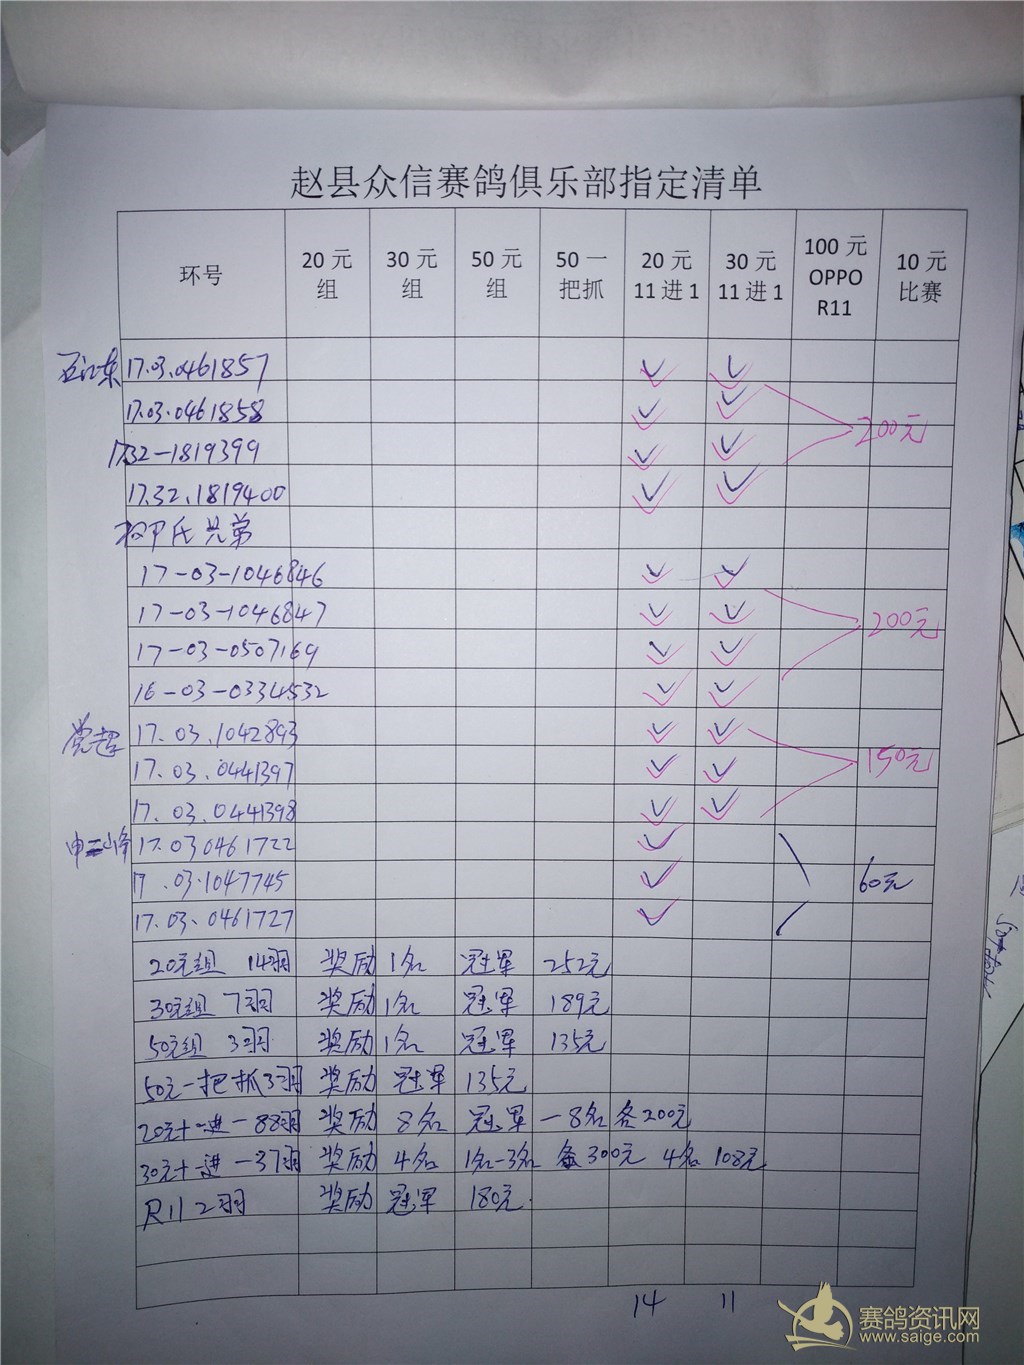 赵县众信赛鸽俱乐部指定清单
环号 20元组 30元组 50元组 50一把抓 20元11进1 30元11进1 100元OPPO R11 10元比赛
17.03.0461857 ✓ ✓
17.03.0461858 ✓ ✓ 200元
1732-1819399 ✓ ✓
17.32.1819400 ✓ ✓
甲氏兄弟
17-03-1046846 ✓ ✓
17-03-1046847 ✓ ✓ 200元
17-03-0507169 ✓ ✓
16-03-0334532 ✓ ✓
党超 17.03.1042893 ✓ ✓
17.03.0441397 ✓ ✓ 150元
17.03.0441398 ✓ ✓
申二峰 17.030461722 ✓
17.03.1047745 ✓ 60元
17.03.0461727 ✓
20元组 14羽 奖励 1名 冠军 252元
30元组 7羽 奖励 1名 冠军 189元
50元组 3羽 奖励 1名 冠军 135元
50元一把抓3羽 奖励 冠军 135元
20元十一进一88羽 奖励 8名 冠军一8名 各200元
30元十一进一37羽 奖励 4名 1名-3名 各300元 4名 108元
R11 2羽 奖励 冠军 180元.
14 11
赛鸽资讯网
www.saige.com